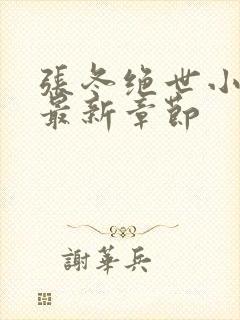 張冬绝世小
最新章節
謝華兵